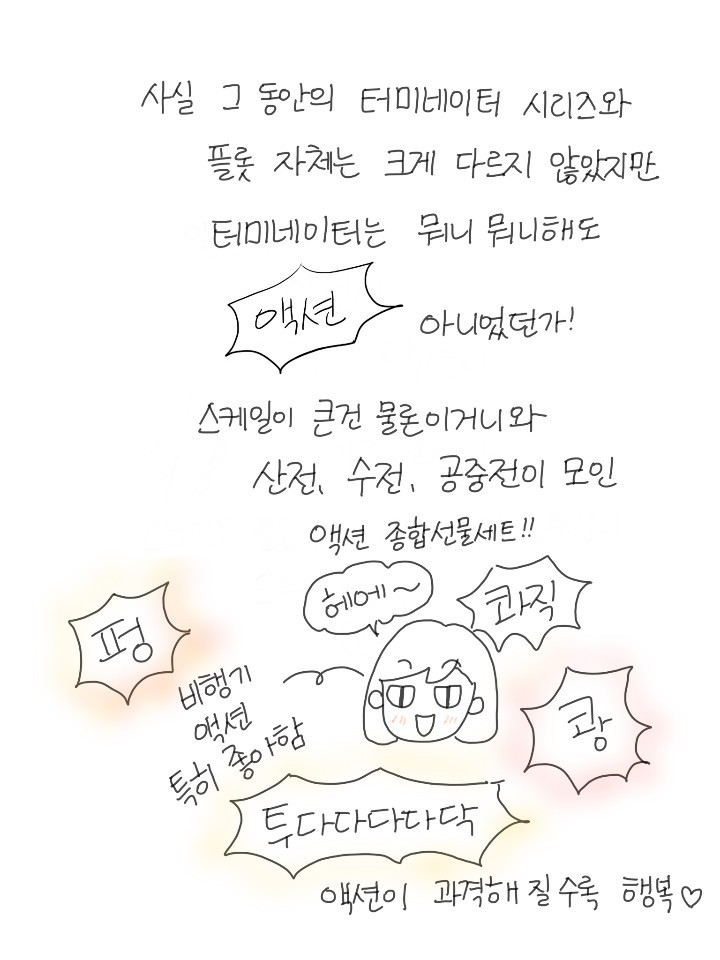 사실 그 동안의 터미네이터 시리즈와
플롯 자체는 크게 다르지 않았지만
터미네이터는 뭐니 뭐니해도
액션 아니었던가!
스케일이 큰건 물론이거니와
산전, 수전, 공중전이 모인
액션 종합선물세트!!
헤에~
콰직
펑
비행기
액션
특히 좋아함
쾅
투다다다다닥
액션이 과격해 질수록 행복♡